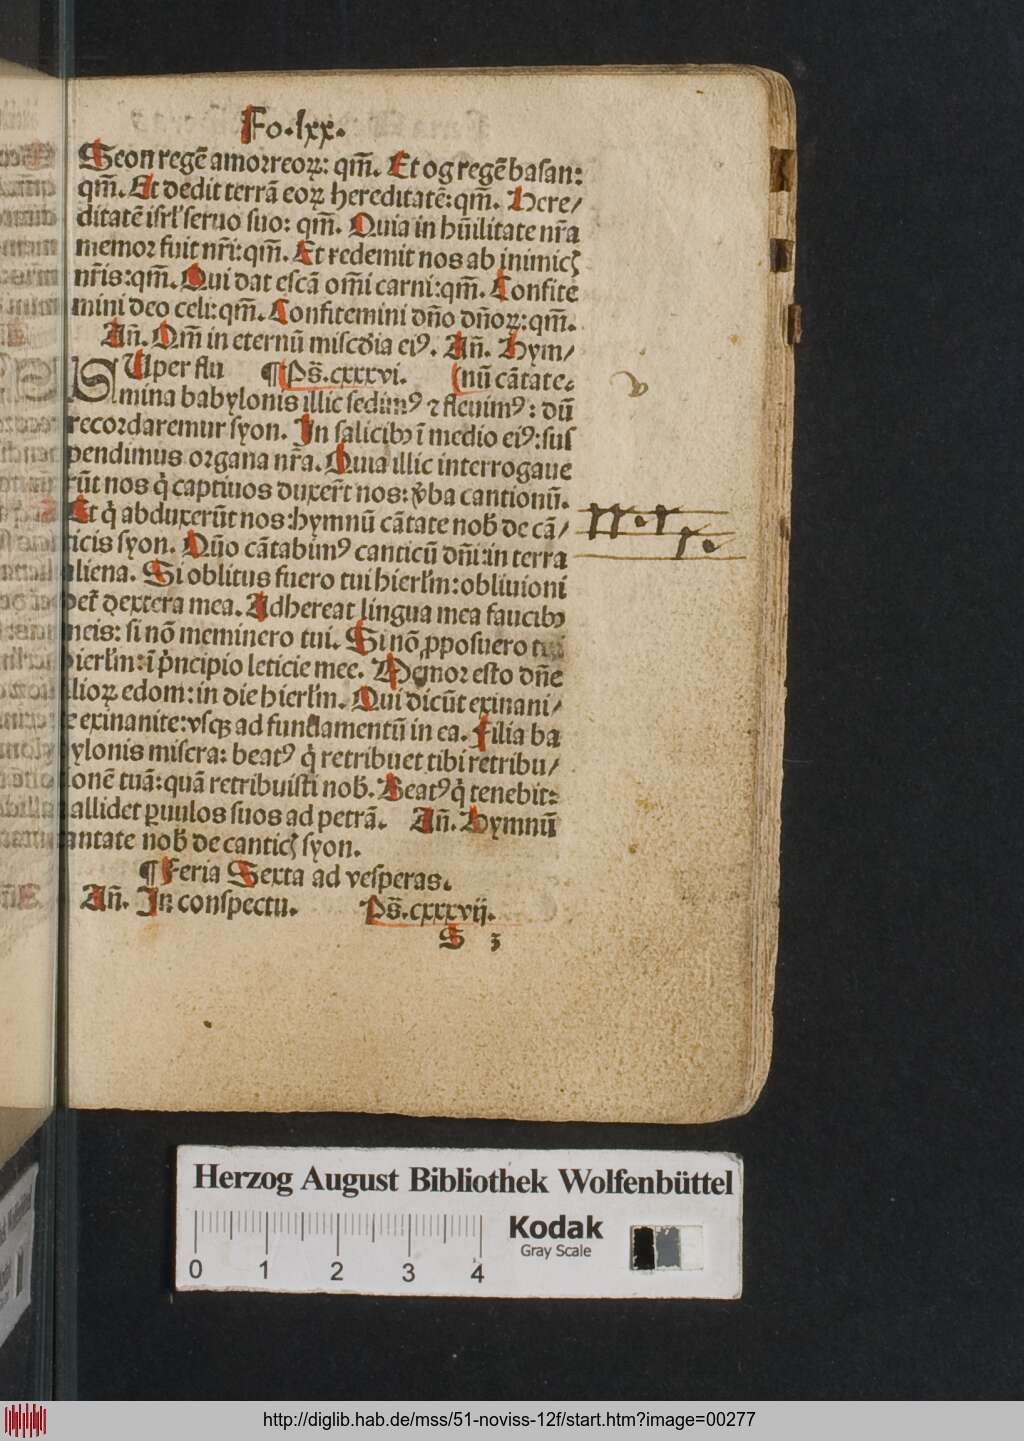 Fo.lxx.
Seon regē amorreoꝝ: qm̄. Et og regē basan:
qm̄. Et dedit terrā eoꝝ hereditatē: qm̄. Here/
ditatē isrl' seruo suo: qm̄. Quia in hūilitate nr̄a
memor fuit nr̄i: qm̄. Et redemit nos ab inimicꝭ
nr̄is: qm̄. Qui dat escā om̄i carni: qm̄. Confite
mini deo celi: qm̄. Confitemini dn̄o dn̄oꝝ: qm̄.
Añ. Qm̄ in eternū misc̄dia eiꝰ. Añ. Hym/
SUper flu ¶ Ps̄. cxxxvi. (nū cātate.
mina babylonis illic sedimꝰ ⁊ fleuimꝰ: dū
recordaremur syon. In salicibꝫ ī medio eiꝰ: sus
pendimus organa nr̄a. Quia illic interrogaue
rūt nos q̇ captiuos duxer̄t nos: v̄ba cantionū.
Et q̇ abduxerūt nos: hymnū cātate nob̄ de cā/
ticis syon. Qūo cātabimꝰ canticū dn̄i: in terra
aliena. Si oblitus fuero tui hierl'm: obliuioni
det̄ dextera mea. Adhereat lingua mea faucibꝫ
meis: si nō meminero tui. Si nō ꝓposuero tui
hierl'm: ī p̄ncipio leticie mee. Memor esto dn̄e
filioꝝ edom: in die hierl'm. Qui dicūt exinani/
te exinanite: vsqꝫ ad fundamentū in ea. Filia ba
bylonis misera: beatꝰ q̇ retribuet tibi retribu/
tionē tuā: quā retribuisti nob̄. Beatꝰ q̇ tenebit:
⁊ allidet ꝑuulos suos ad petrā. Añ. Hymnū
cantate nob̄ de canticꝭ syon.
¶ Feria Sexta ad vesperas.
Añ. In conspectu. Ps̄. cxxxvij.
S 3
Herzog August Bibliothek Wolfenbüttel
Kodak
Gray Scale
0 1 2 3 4
http://diglib.hab.de/mss/51-noviss-12f/start.htm?image=00277